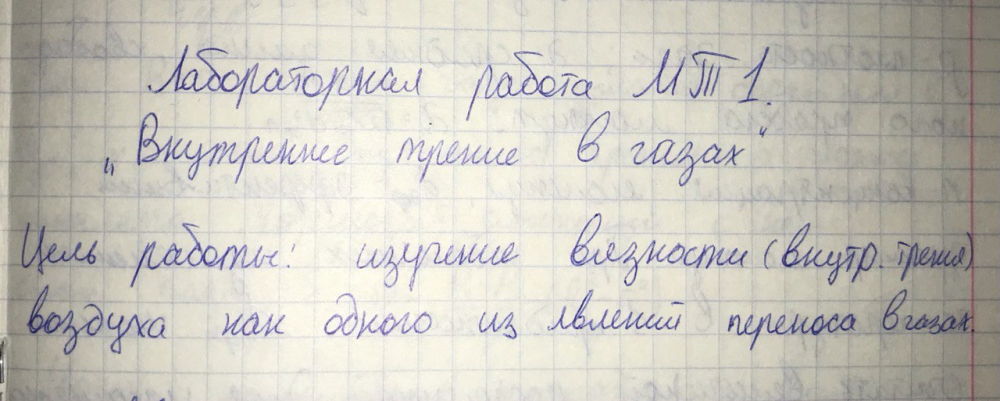 Лабораторная работа МТ 1.
„Внутреннее трение в газах"
Цель работы: изучение вязкости (внутр. трения)
воздуха как одного из явлений переноса в газах.